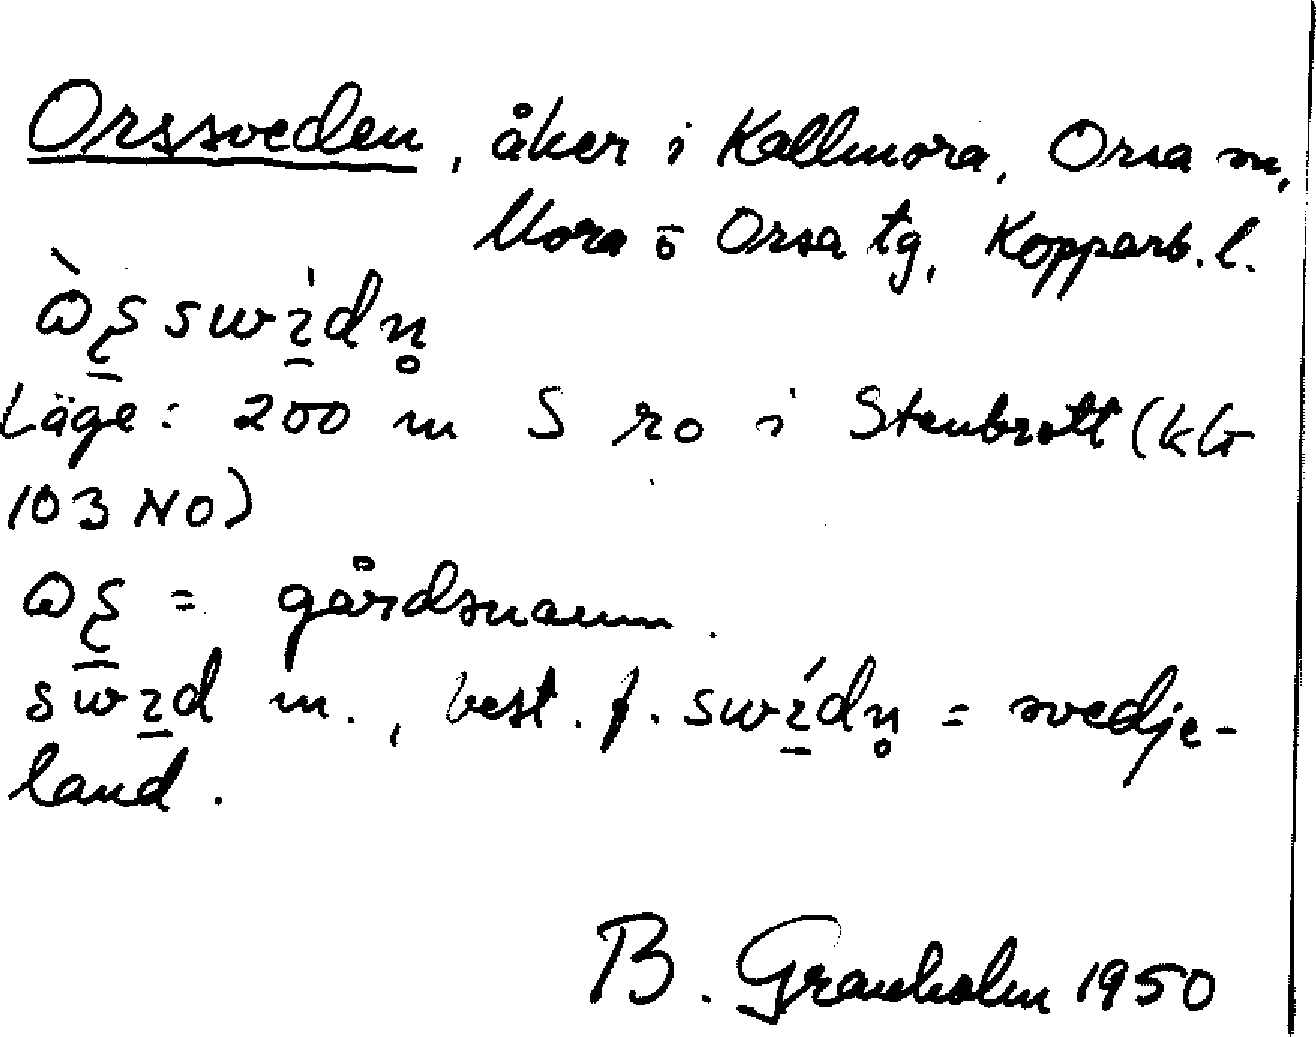 Orssveden, åker i Kallmora, Orsa sn,
Mora o Orsa tg, Kopparb. l.
Läge: 200 m S ro i Stenbrott (kG
103 NO)
= gårdsnamn.
m., best. f. = svedje-
land.
B. Granholm 1950